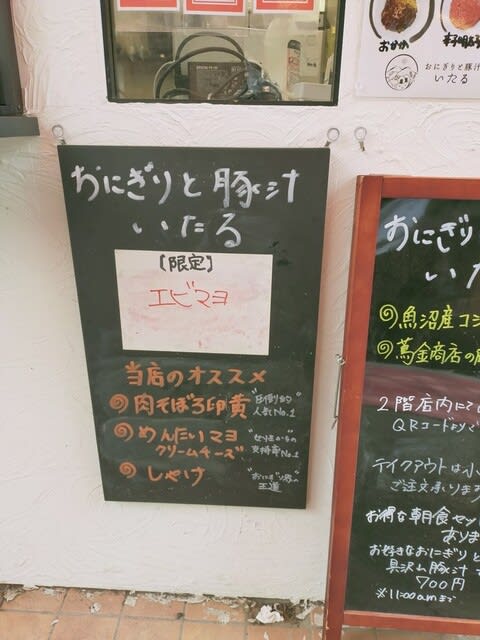 おかか
おにぎりと豚汁
いたる
おにぎりと豚汁
いたる
【限定】
エビマヨ
当店のオススメ
肉そぼろ卵黄 "圧倒的"人気No.1
めんたいマヨ
クリームチーズ
支持率No.1
しゃけ "おにぎり界の王道"
おにぎり
いた
魚沼産コシ
蔦金商店の
2階店内にて
QRコードより
テイクアウトは
ご注文承ります
お得な朝食セッ
ありま
お好きなおにぎりと
具沢山豚汁
700円
※11:00amまで